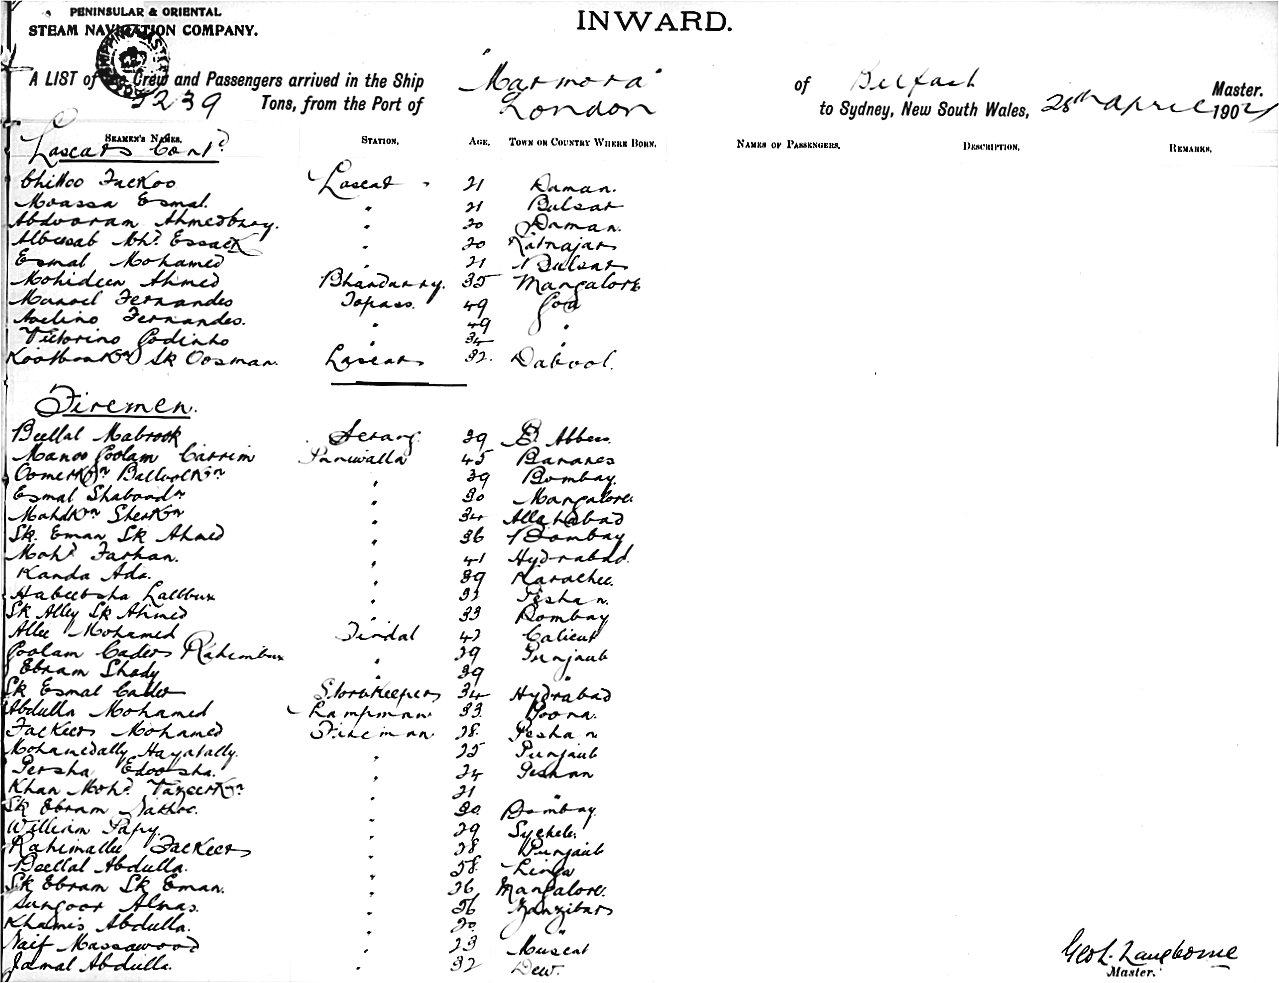 PENINSULAR & ORIENTAL
STEAM NAVIGATION COMPANY.
INWARD.
A LIST of the Crew and Passengers arrived in the Ship "Marmora" of Belfast Master.
5239 Tons, from the Port of London to Sydney, New South Wales, 28th April 1904
SEAMEN'S NAMES. STATION. AGE. TOWN OR COUNTRY WHERE BORN. NAMES OF PASSENGERS. DESCRIPTION. REMARKS.
Lascars Cont?
Fackoo Lascar 21 Daman.
Moassa Esmal. " 21 Bulsar
Abdooram Ahmedbhoy. " 20 Daman.
Mhd. Essack " 20
Esmal Mohamed " 21 Bulsar
Mohideen Ahmed Bhandarry. 35 Mangalore
Manoel Fernandes Topass. 49 Goa
Avelino Fernandes. " 49 "
Victorino Godinho 34
Sk Oosman. Lascar 32. Dabool.
Firemen.
Bellal Mabrook Serang. 39
Manoo Goolam Carrim Paniwalla 45 Banares
" 39 Bombay.
Esmal " 30 Mangalore.
" 34 Allahabad
Sk. Eman Sk Ahmed " 36 Bombay
Mohd Farhan. " 41 Hydrabad.
Kanda Ada. " 39 Karachee.
Habeebsha Lallbux " Peshan.
Sk Alley Sk Ahmed " 33 Bombay
Allee Mohamed Tindal Calicut
Goolam Cader Rahimbux " 39 Punjaub
Ebram Shady 39 "
Sk Esmal Cader Storekeeper 34 Hydrabad
Abdulla Mohamed Lampman 33. Poona.
Fackeer Mohamed Fireman 28. Peshan
Mohamedally Hayatally. " 25 Punjaub
Persha Edoosha. " 24 Peshan
Khan Mohd. " 21 "
Sk Ebram " 30. Bombay.
William Papy. " 29
Rahimallee Fackeer " 28 Punjaub
Bellal Abdulla. " 38. Linga
Sk Ebram Sk Eman. " 36 Mangalore.
Sungoor Almas. " 36 Zanzibar
Khamis Abdulla. " 20 "
Naif Massawood " 23 Muscat
Jamal Abdulla. " 32 Dew.
Geo L. Langborne
Master.